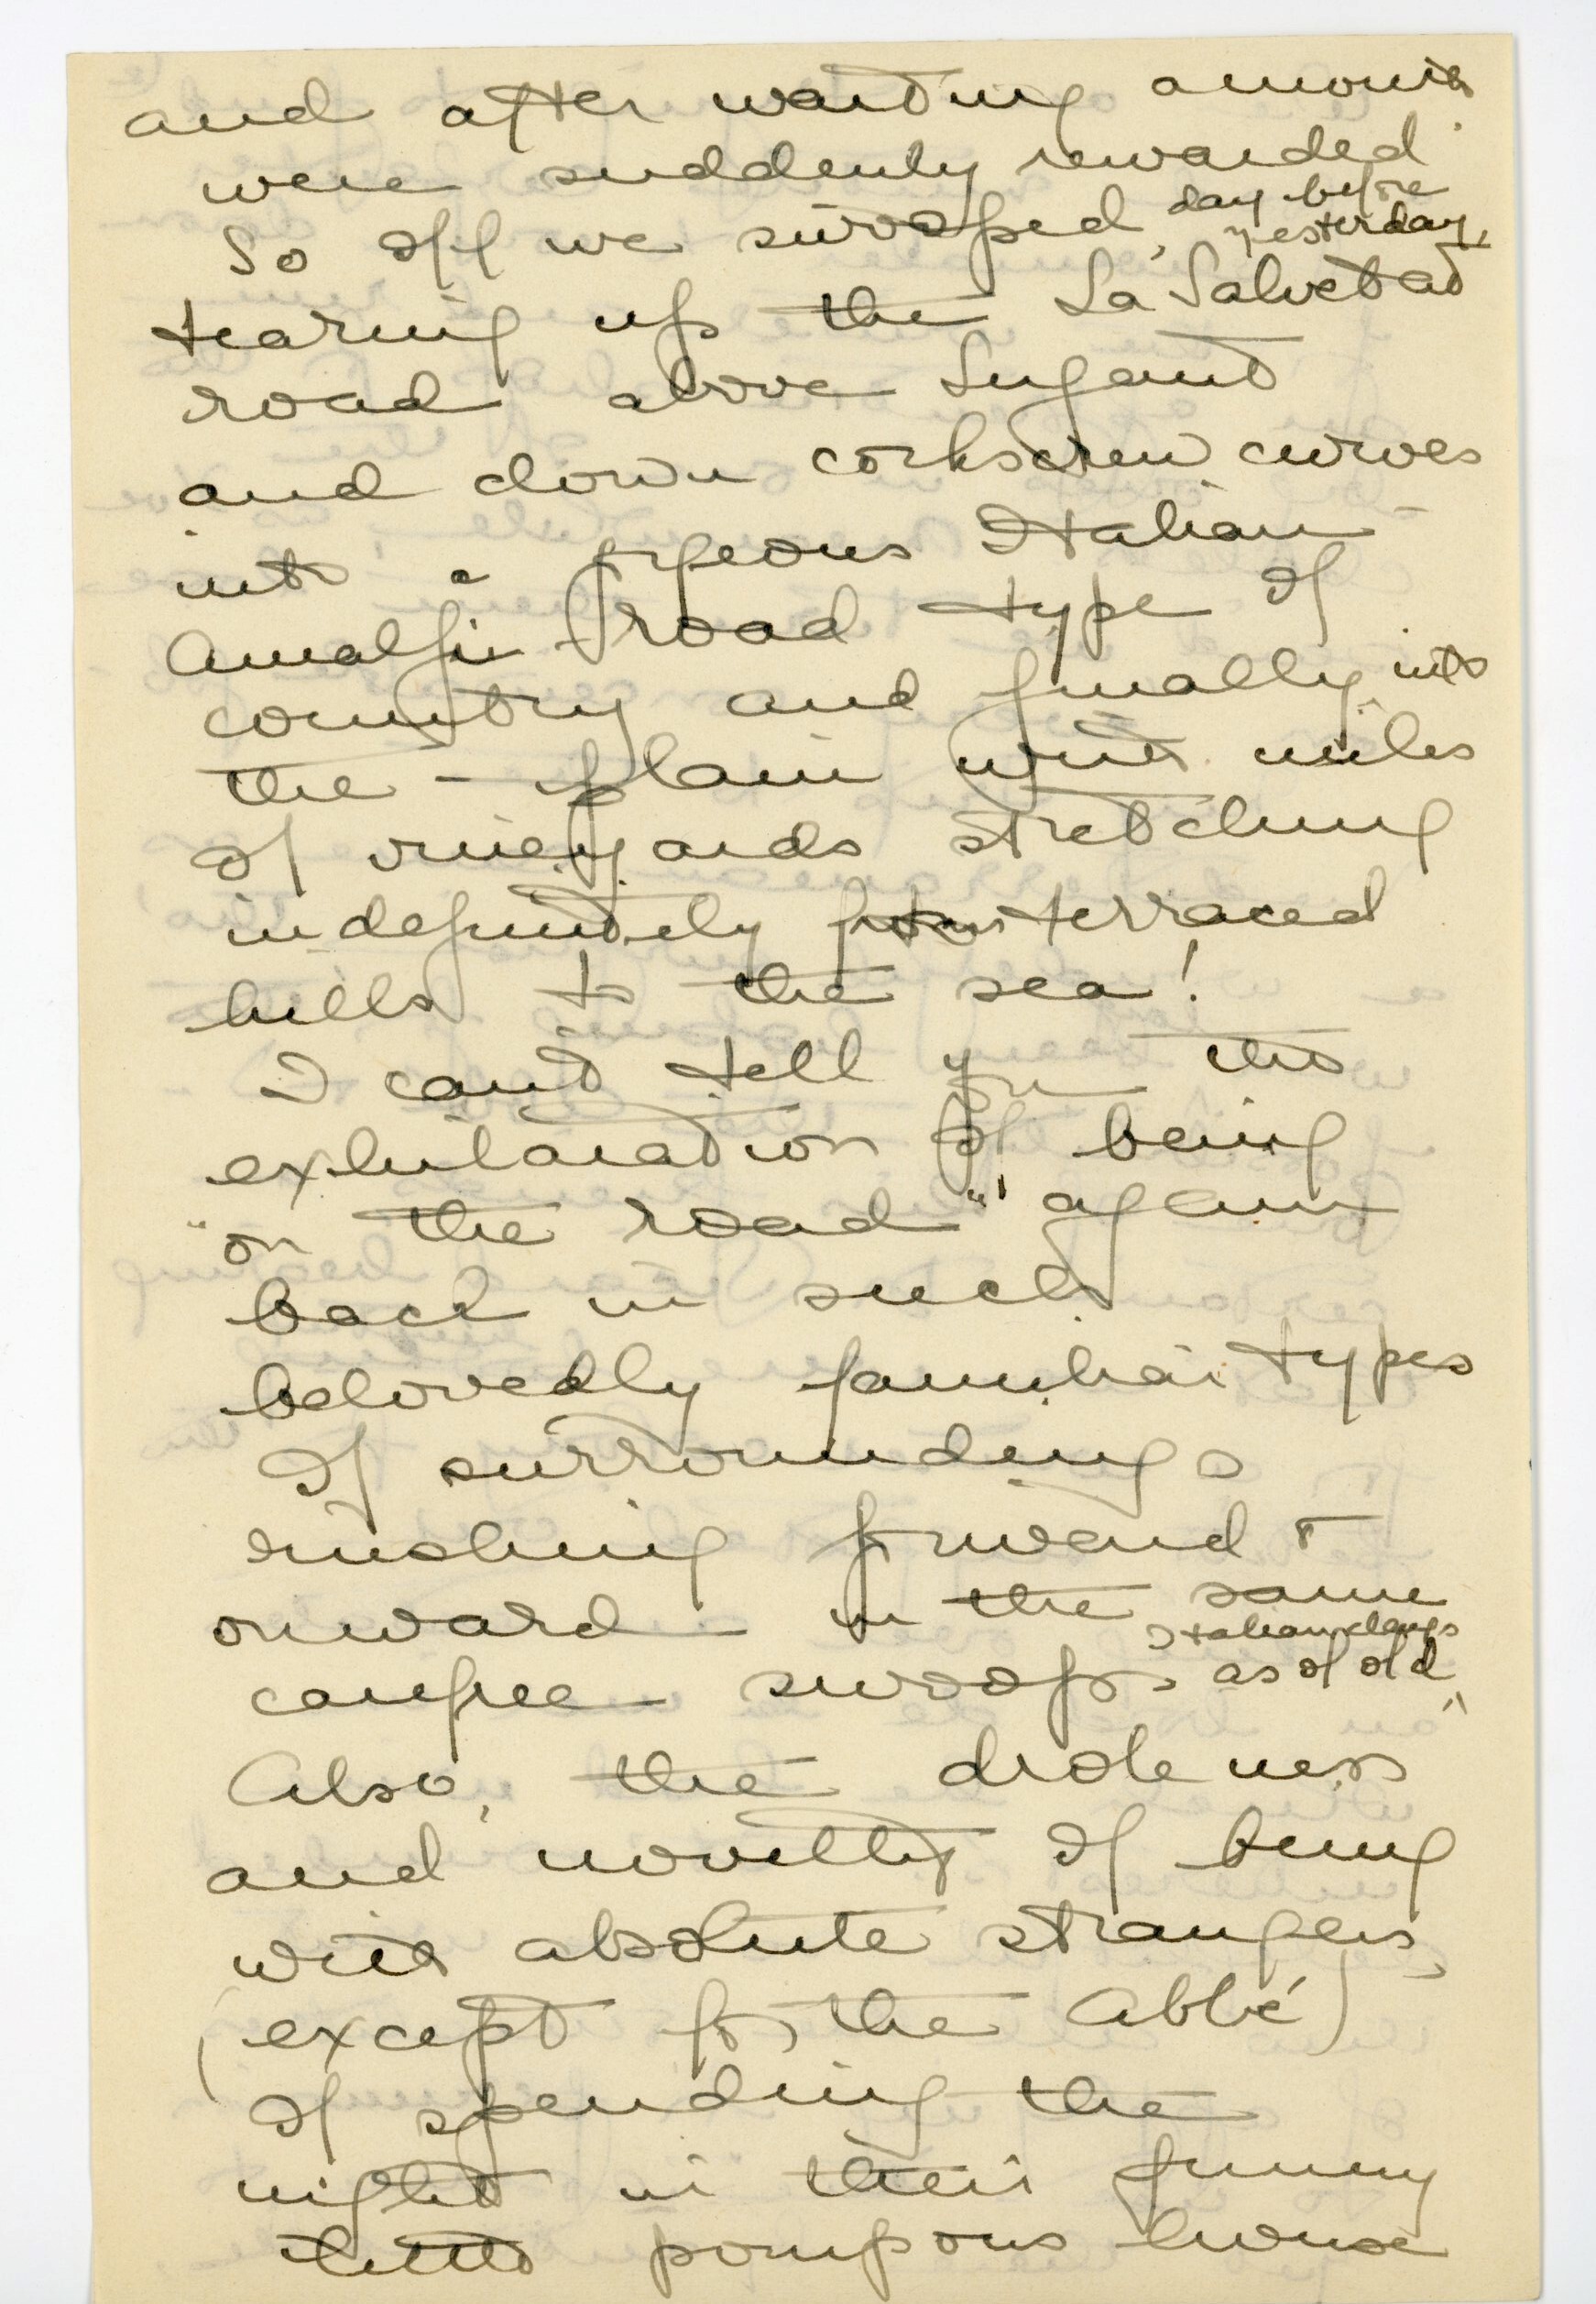 and after waiting a month
were suddenly rewarded
So off we swooped, day before yesterday,
tearing up the La Salvetat
road above
and down corkscrew curves
into a gorgeous Italian
Amalfi road type of
country and finally into
the - plain with miles
of vineyards stretching
indefinitely from terraced
hills to the sea!
I can't tell you the
exhilaration of being
"on the road" again
back in such
belovedly familiar types
of surroundings
rushing forward +
onward - in the same
Italian days
swoops as of old,
Also, the droleness
and novelty of being
with absolute strangers,
(except for the Abbé)
of spending the
night in their funny
little pompous house